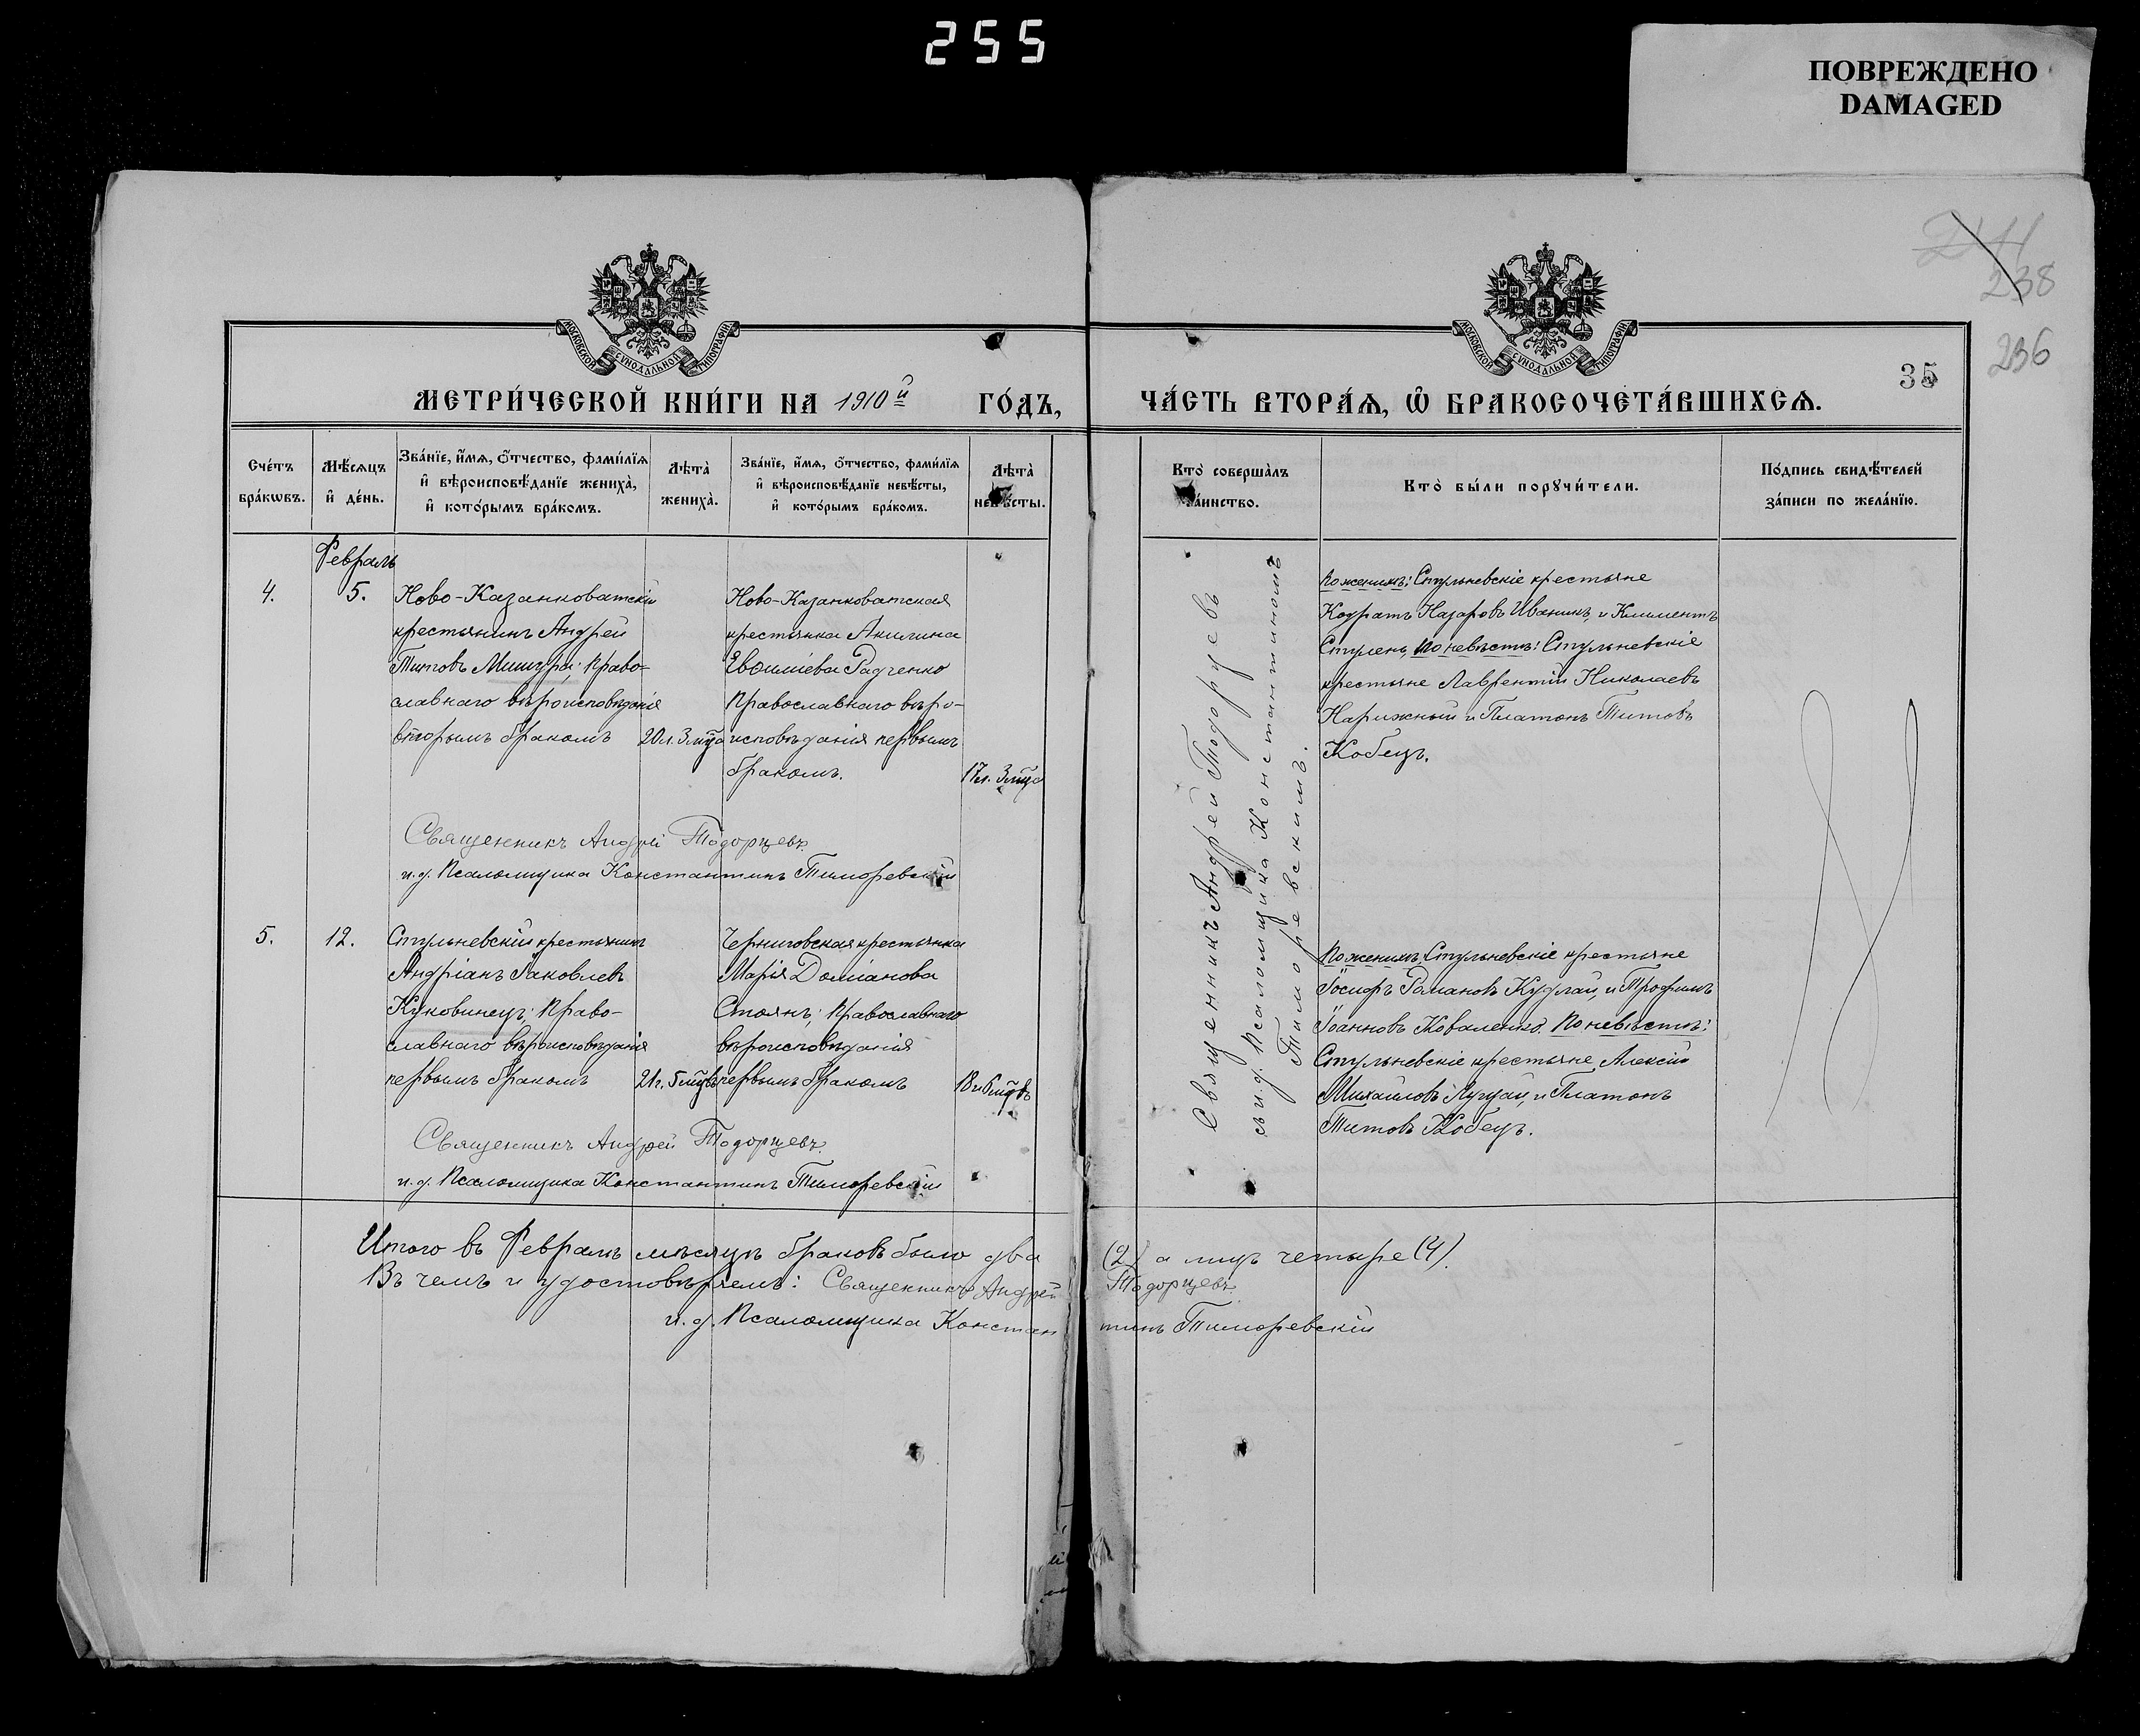 255
ПОВРЕЖДЕНО
DAMAGED
241
238
236
35
МОСКОВСКОЙ СѴНОДАЛЬНОЙ ТИПОГРАФІИ
МОСКОВСКОЙ СѴНОДАЛЬНОЙ ТИПОГРАФІИ
МЕТРИ́ЧЕСКОЙ КНИ́ГИ НА 1910й ГО́ДЪ,
ЧА́СТЬ ВТОРА́Ѧ, Ѡ҆ БРАКОСОЧЕТА́ВШИХСѦ.
Сче́тъ
бра́кѡвъ.
Мѣ́сѧцъ
и҆ де́нь.
Зва́нїе, и҆́мѧ, ѻ҆́тчество, фами́лїѧ
и҆ вѣроисповѣ́данїе жениха̀,
и҆ кото́рымъ бра́комъ.
Лѣта̀
жениха̀.
Зва́нїе, и҆́мѧ, ѻ҆́тчество, фами́лїѧ
и҆ вѣроисповѣ́данїе невѣ́сты,
и҆ кото́рымъ бра́комъ.
Лѣта̀
невѣ́сты.
Кто̀ соверша́лъ
та́инство.
Кто̀ бы́ли порꙋчи́тели.
По́дпись свидѣ́телей
за́писи по жела́нїю.
Февраль
4.
5.
Ново-Казанковатскій
крестьянинъ Андрей
Титовъ Мишура; Право-
славнаго вѣроисповѣданія
вторымъ бракомъ
20 л. 3 мѣс
Ново-Казанковатская
крестьянка Акилина
Евѳиміева Радченко
Православнаго вѣро-
исповѣданія первымъ
бракомъ.
17 л. 3 мѣс
Священникъ Андрей Тодорцевъ
съ и. д. Псаломщика Константиномъ
Тиморевскимъ.
По женихѣ: Стульневскіе крестьяне
Кодратъ Назаровъ Иваникъ, и Климентъ
Стулень, По невѣстѣ: Стульневскіе
крестьяне Лаврентій Николаевъ
Нарижный и Платонъ Титовъ
Кобецъ.
Священникъ Андрей Тодорцевъ
и. д. Псаломщика Константинъ Тиморевскій
5.
12.
Стульневскій крестьянинъ
Андріанъ Іаковлевъ
Куковинецъ; Право-
славнаго вѣроисповѣданія
первымъ бракомъ
21 г. 5 мѣсцвъ
Черниговская крестьянка
Марія Доміанова
Стоянъ; Православнаго
вѣроисповѣданія
первымъ бракомъ
18 л 6 мѣсцвъ
По женихѣ: Стульневскіе крестьяне
Іосифъ Романовъ Кудлай, и Трофимъ
Іоанновъ Коваленко. По невѣстѣ:
Стульневскіе крестьяне, Алексій
Михаиловъ Лугцай, и Платонъ
Титовъ Кобецъ.
Священникъ Андрей Тодорцевъ
и. д. Псаломщика Константинъ Тиморевскій
Итого въ Февралѣ мѣсяцѣ браковъ было два (2) а лицъ четыре (4).
Въ чемъ и удостовѣряемъ: Священникъ Андрей Тодорцевъ
и. д. Псаломщика Константинъ Тиморевскій